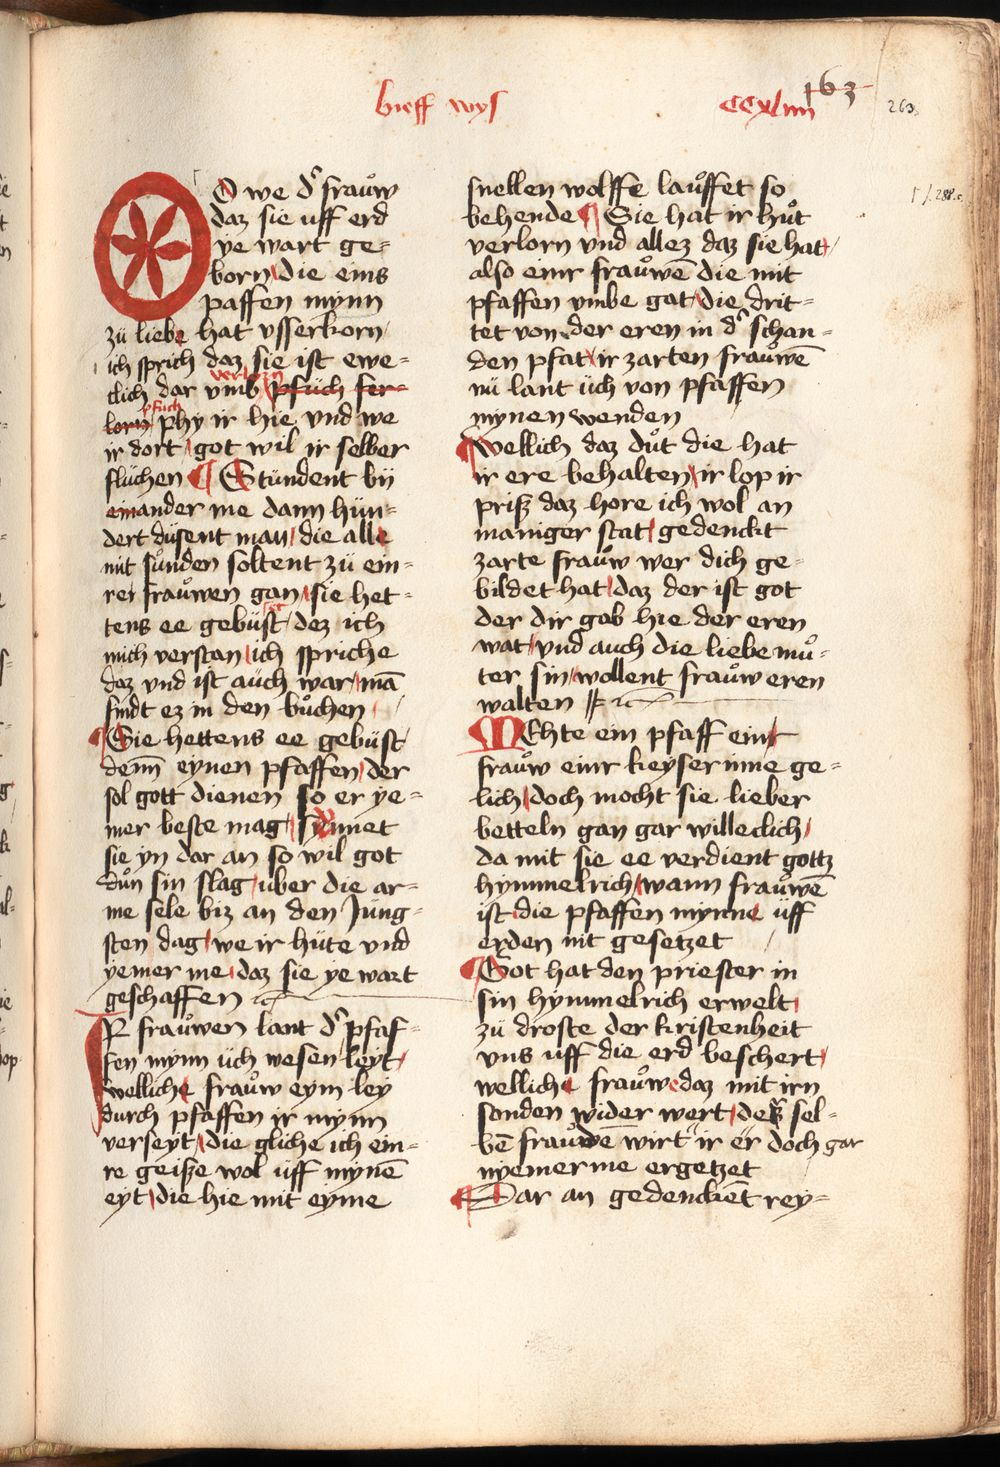 brieff wys
CCxliiii
163
263
O we dˢ frauͦw
daz sie uff erd
ye wart ge=
born die eins
paffen mynn
zü liebe hat vsserkorn
ich sprich daz sie ist ewe=
clich dar vmb pfüch fer=
verlorn
lorn phy ir hie vnd we
pfuch
ir dort got wil ir selber
flüchen Stündent by
einander me dann hün=
dert düsent man die alle
mit suͦnden soltent zü ein=
rer frauͦwen gan sie het=
tens ee gebüst dez ich
mich verstan ich spriche
daz vnd ist auch war mā
findt ez in den buͦchen
Sie hettens ee gebüst
denn eynen pfaffen der
sol gott dienen so er ye=
mer beste mag synnet
sie yn dar an so wil got
duͦn sin slag uber die ar=
me sele biz an den Jung=
sten dag we ir hüte vnd
yemer me daz sie ye wart
geschaffen
IR frauͦwen lant dˢ pfaf=
fen mynn üch wesen leyt
welliche frauͦw eym ley
durch pfaffen ir mynn
verseyt die gliche ich ein=
re geiße wol uff mynē
eyt die hie mit eyme
snellen wolffe lauͦffet so
behende Sie hat ir huͦt
verlorn vnd allez daz sie hat
also einr frauͦwē die mit
pfaffen vmbe gat die drit=
tet von der eren in dˢ schan=
den pfat ir zarten frauͦwē
nü lant üch von pfaffen
mynen wenden
Wellich daz duͦt die hat
ir ere behalten ir lop ir
priß daz hore ich wol an
maniger stat gedenckt
zarte frauͦw wer dich ge=
bildet hat daz der ist got
der dir gab hie der eren
wat vnd auch die liebe muͦ=
ter sin wollent frauͦw eren
walten
MEhte ein pfaff einr
frauͦw einr keyserinne ge=
lich doch mocht sie lieber
betteln gan gar willeclich
da mit sie ee verdient gottz
hymmelrich wann frauͦwē
ist die pfaffen mynne uff
erden nit gesetzet
Got hat den priester in
sin hymmelrich erwelt
zü droste der kristenheit
vns uff die erd beschert
welliche frauͦwe daz mit irn
sonden wider wert dez sel=
bē frauͦwē wirt ir er doch gar
nyemer me ergetzet
Dar an gedenckēt rey=